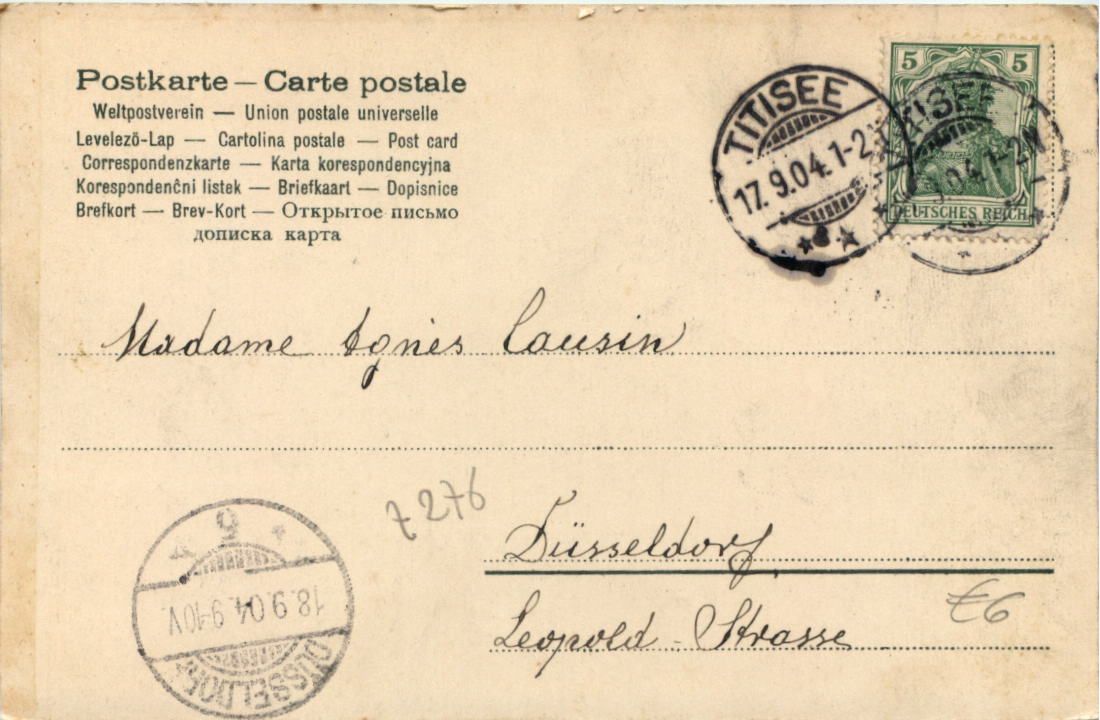 Postkarte — Carte postale
Weltpostverein — Union postale universelle
Levelezö-Lap — Cartolina postale — Post card
Correspondenzkarte — Karta korespondencyjna
Korespondenčni listek — Briefkaart — Dopisnice
Brefkort — Brev-Kort — Открытое письмо
дописка карта
TITISEE
17.9.04.1-2N
5 5
DEUTSCHES REICH
TITISEE
9.04.1-2N
Madame Agnès Cousin
7276
Düsseldorf
€6
Leopold-Strasse
5
18.9.04.9-10V.
DÜSSELDORF